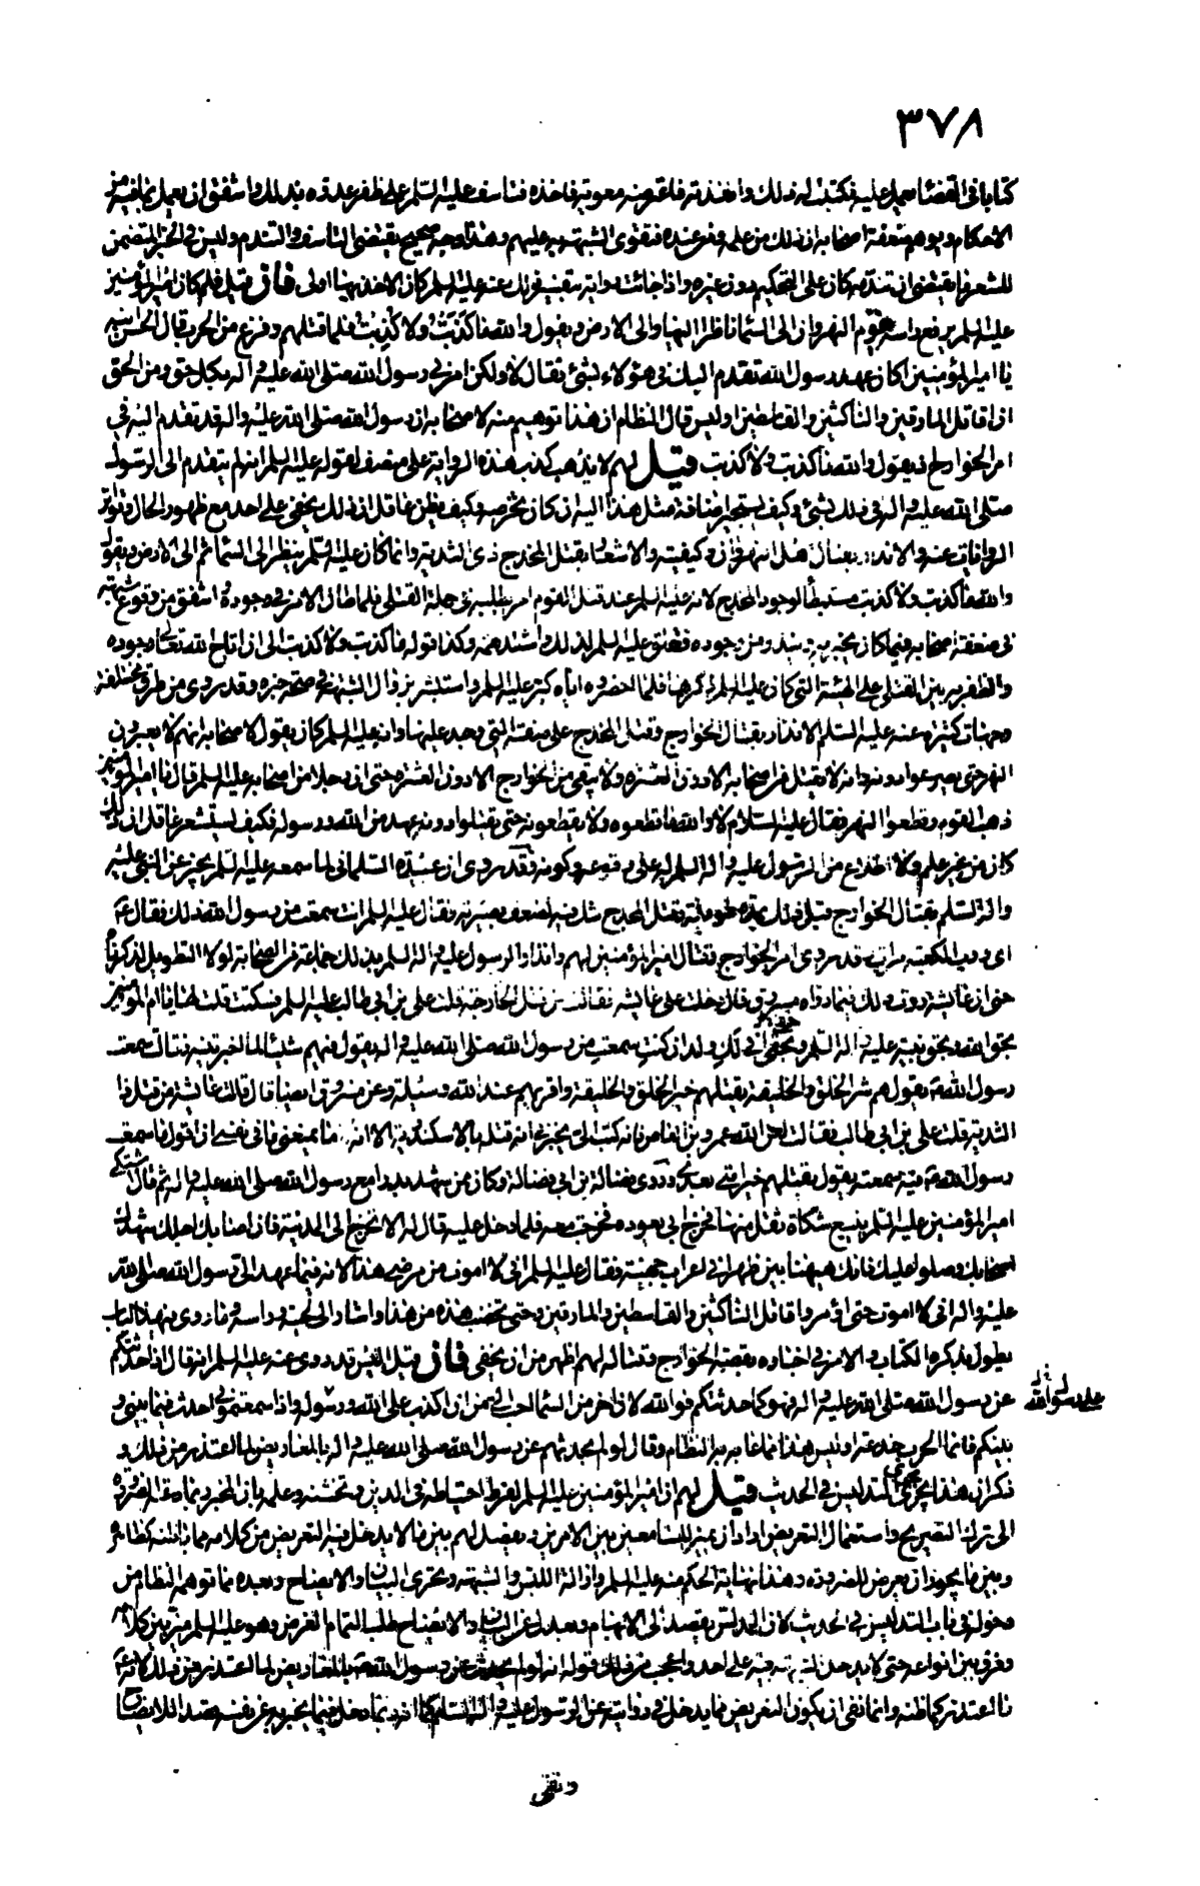 ٣٧٨
كتابا في القضا يعمل عليه فكتبت له ذلك وانفذته فاعترضه معوية فاخذه فتاسف عليه السلم على ظفر عدوه بذلك واشفق ان يعمل بما فيه من
الاحكام ويوهم ضعفة اصحابه ان ذلك من علمه ومن عنده فتقوى الشبهة به عليهم وهذا وجه صحيح يقتضى التاسف والتندم وليس في الخبر المتضمن
للشعر ما يقتضى ان تندمه كان على التحكيم دون غيره واذا جائت رواية بتفسير ذلك عنه عليه السلم كان الاخذ بها اولى فان قيل فلم كان امير المؤمنين
عليه السلم يرفع راسه يوم النهروان الى السما ناظرا اليها والى الارض ويقول والله ما كذبت ولا كذبت فلما قتلهم وفرغ من الحرب قال الحسن ابنه
يا امير المؤمنين اكان عهد رسول الله تقدم اليك في هؤلاء بشئ فقال لا ولكن امرني رسول الله صلى الله عليه واله بكل حق ومن الحق
ان اقاتل المارقين والناكثين والقاسطين اوليس قال النظام ان هذا توهيم منه لاصحابه ان رسول الله صلى الله عليه واله قد تقدم اليه في
امر الخوارج فيقول والله ما كذبت ولا كذبت قيل لهم لا يذهب كذب هذه الرواية على منصف لقوله عليه السلم انه لم يتقدم الى الرسول
صلى الله عليه واله في ذلك بشئ وكيف يستجيز اضافة مثل هذا اليه ان كان يخترصه وكيف يظن عاقل ان ذلك يخفى على احد مع ظهور الحال وتواتر
الروايات عنه والانذار بقتال اهل النهروان وكيفيته والاشعار بقتل المخدج ذى الثدية وانما كان عليه السلم ينظر الى السما ثم الى الارض ويقول
والله ما كذبت ولا كذبت مستبطأ لوجود المخدج لانه عليه السلم عند قتل القوم امر بطلبه في جملة القتلى فلما طال الامر في وجوده اشفق من وقوع شبهة
في ضعفة اصحابه فيما كان يخبر به وينذر من وجوده فقلق عليه السلم لذلك واشتد همه وكذا قوله ما كذبت ولا كذبت الى ان اتاح الله تعالى وجوده
والظفر به بين القتلى على الهيئة التى كان عليه السلم ذكرها فلما احضروه اياه كبر عليه السلم واستبشر بزوال الشبهة في صحة خبره وقد روى من طرق مختلفة
وجهات كثيرة عنه عليه السلم الانذار بقتال الخوارج وقتل المخدج على صفته التى وجد عليها وانه عليه السلم كان يقول لاصحابه انهم لا يعبرون
النهر حتى يصرعوا دونه وانه لا يقتل من اصحابه الا دون العشرة ولا يبقى من الخوارج الا دون العشرة حتى ان رجلا من اصحابه عليه السلم قال يا امير المؤمنين
ذهب القوم وقطعوا النهر فقال عليه السلام لا والله ما قطعوه ولا يقطعونه حتى يقتلوا دونه عهد من الله ورسوله فكيف يستشعر عاقل ان ذلك
كان من غير علم ولا اطلاع من الرسول عليه واله السلم له على وقوعه وكونه فقد روى ان عبيدة السلمانى لما سمعه عليه السلم يخبر عن النبي عليه
واله السلم بقتال الخوارج قبل ذلك بمدة طويلة وقتل المخدج شك فيه لضعف بصيرته فقال عليه السلم انت سمعت من رسول الله ذلك فقال عم
اى ورب الكعبة مرات وقد روى امر الخوارج وقتال امير المؤمنين لهم وانذار الرسول عليه واله السلم بذلك جماعة من الصحابة لولا التطويل لذكرناه
حتى ان عائشة روت ذلك فيما رواه مسروق قال دخلت على عائشة فقالت من قتل الخارجة قلت على بن ابي طالب عليه السلم فسكتت قلت لها يا ام المؤمنين
بحق الله وبحق نبيه عليه واله السلم وبحقى فاني لك ولد ان كنت سمعت من رسول الله صلى الله عليه واله يقول فيهم شيئا لما اخبرتينه فقالت سمعت
رسول الله ص يقول هم شر الخلق والخليقة يقتلهم خير الخلق والخليقة واقربهم عند الله وسيلة وعن مسروق ايضا قال قالت عائشة من قتل ذا
الثدية قلت على بن ابي طالب فقالت لعن الله عمرو بن العاص فانه كتب الى يخبرني انه قتله بالاسكندرية الا انه ما يمنعنى ما في نفسى ان اقول ما سمعت
رسول الله ص فيه سمعته يقول يقتلهم خير امتى بعدى وروى فضالة بن ابى فضالة وكان ممن شهد بدرا مع رسول الله صلى الله عليه واله ثم قال اشتكى
امير المؤمنين عليه السلم بينبع شكاة ثقل منها فخرج ابى يعوده فخرجت معه فلما دخل عليه قال له الا تخرج الى المدينة فان اصابك اجلك شهدك
اصحابك وصلوا عليك فانك هيهنا بين ظهراني اعراب جهينة فقال عليه السلم اني لا اموت من مرضى هذا لانه فيما عهد الى رسول الله صلى الله
عليه واله اني لا اموت حتى اؤمر واقاتل الناكثين والقاسطين والمارقين وحتى تخضب هذه من هذا واشار الى لحيته وراسه وما روى في هذا الباب
يطول بذكره الكتاب والامر في اخباره بقصة الخوارج وقتاله لهم اظهر من ان يخفى فان قيل اليس قد روى عنه عليه السلم انه قال اذا حدثتكم
عن رسول الله صلى الله عليه واله فهو كما حدثتكم فوالله لان اخر من السما احب الى من ان اكذب على الله ورسوله واذا سمعتموني احدث فيما بينى و
على رسول الله
بينكم فانما الحرب خدعة اوليس هذا مما عابه به النظام وقال لو لم يحدثهم عن رسول الله صلى الله عليه واله بالمعاريض لما اعتذر من ذلك و
ذكر ان هذا يجرى مجرى التدليس في الحديث قيل لهم ان امير المؤمنين عليه السلم لفرط احتياطه في الدين وتخشنه وعلمه بان المخبر ربما دعته الضرورة
الى ترك التصريح واستعمال التعريض اراد ان يميز للسامعين بين الامرين ويفصل لهم بين ما لا يدخل فيه التعريض من كلامه مما باطنه كظاهره
وبين ما يجوز ان يعرض للضرورة وهذا نهاية الحكمة منه عليه السلم وازالة اللبس والشبهة ويجرى البيان والايضاح وبعده مما توهمه النظام من
دخوله في باب التدليس في الحديث لان المدلس يقصد الى الابهام ويعدل عن البيان والايضاح طلب التمام الغرض وهو عليه السلم ميز بين كلامه
وفرق بين انواعه حتى لا يدخل الشبهة فيه على احد واعجب من ذلك قوله انه لو لم يحدث عن رسول الله ص بالمعاريض لما اعتذر من ذلك لانه عم
ما اعتذر كما ظنه وانما نفى ان يكون التعريض مما يدخل في روايته عن الرسول عليه واله السلم كما انه ربما دخل فيما يخبر به عن نفسه قصدا للايضاح
ونفى